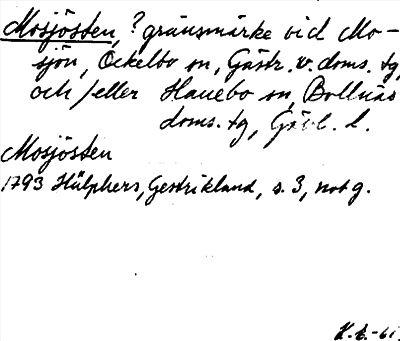 Mosjösten, ? gränsmärke vid Mo-
sjön, Ockelbo sn, Gästr. v. doms. tg,
och/eller Hanebo sn, Bollnäs
doms. tg, Gävl. l.
Mosjösten
1793 Hülphers, Gestrikland, s. 3, not g.